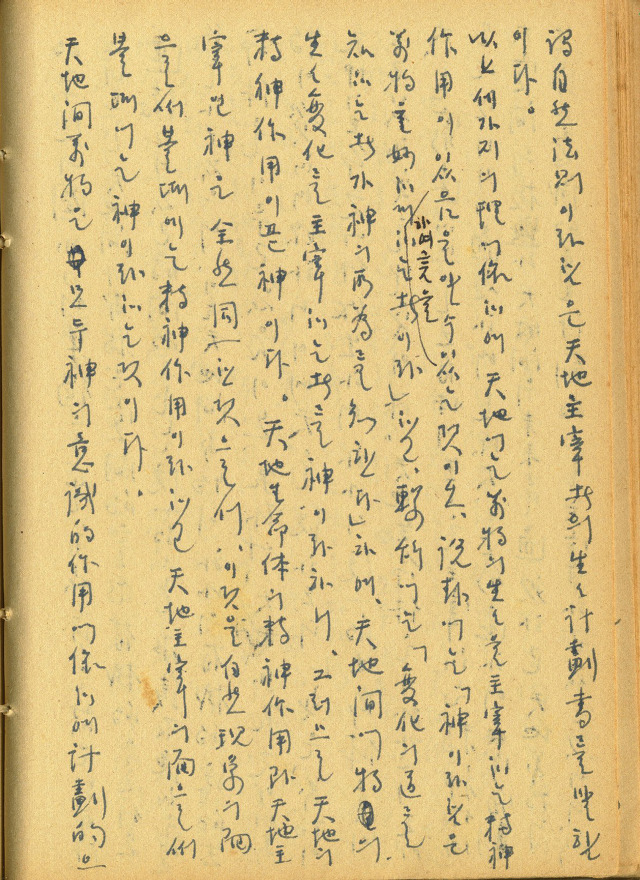 謂自然法則이라 함은 天地主宰者의 生生計劃書를 말함
이다。
以上 세가지의 理에 依하여 天地에는 萬物의 生生을 主宰하는 精神
作用이 있음을 알수있는 것이오、説卦에는「神이라 함은
萬物을 妙하 하여 言을 者이라」하고、繫辭에는「變化의 道를
知하는者가 神의 所為를 知한다」하여、天地間에 物의
生生變化를 主宰하는者를 神이라하니、그럼으로 天地의
精神作用이 곧 神이다。天地生命体의 精神作用 天地主
宰인 神은 全然 同一한 것으로서、이것을 自然現象의 面
으로서 볼때에는 精神作用이라하고 天地主宰의 面으로서
볼때에는 神이라하는 것이다。
天地間萬物은 모두 神의 意識的作用에 依하여 計劃的으